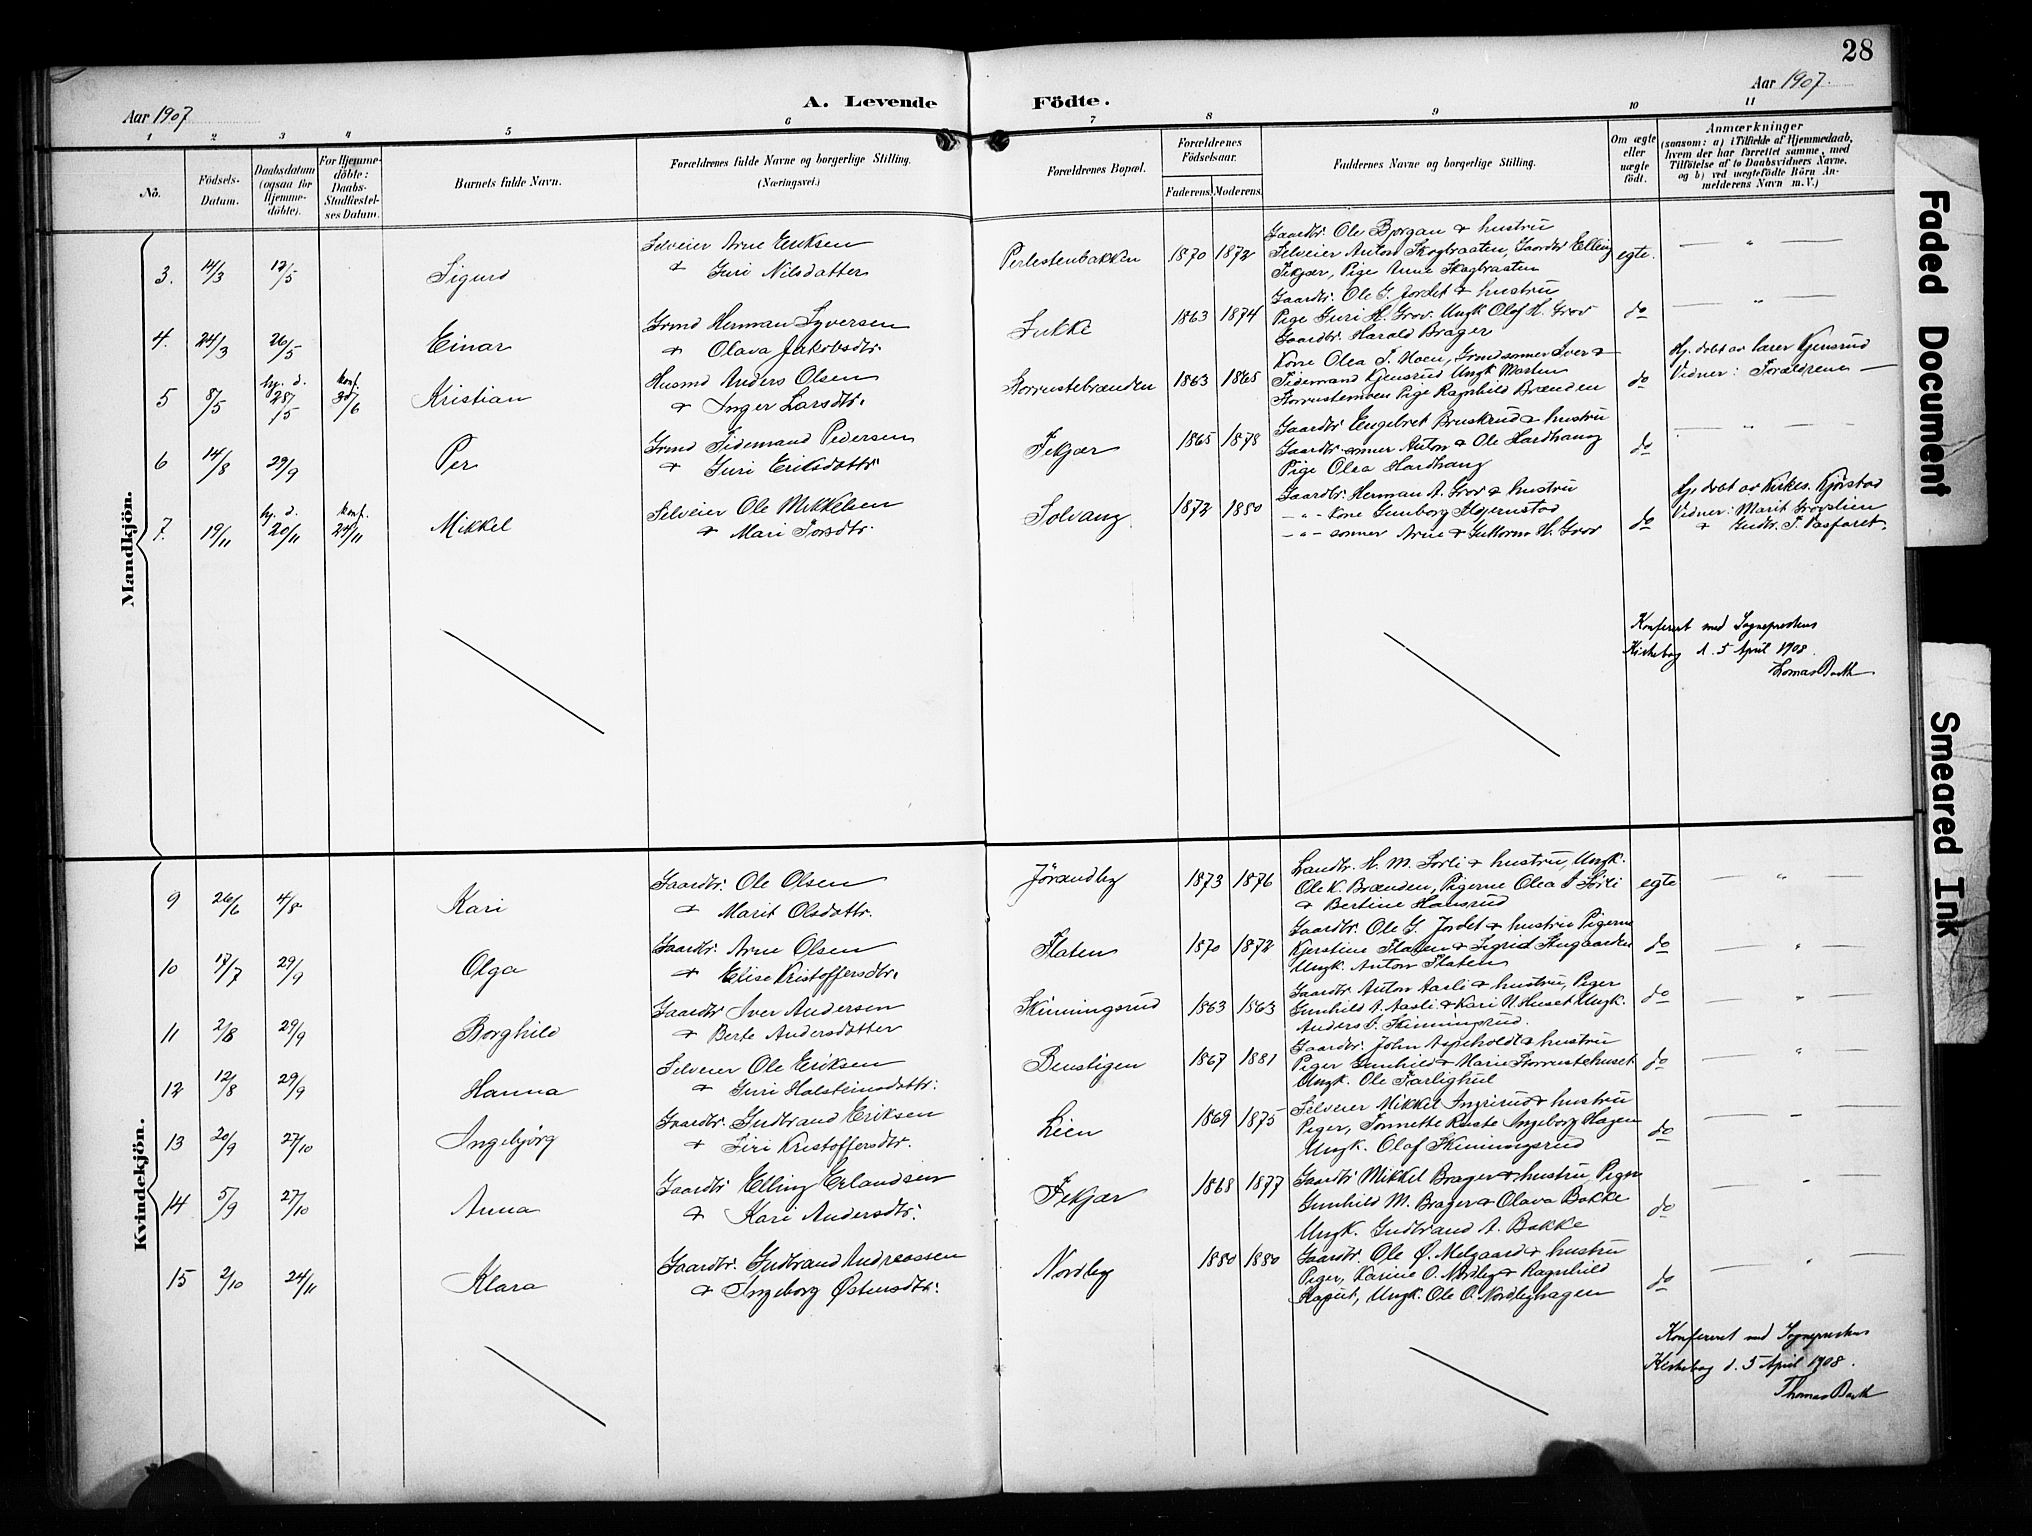 28
Aar 1907
A. Levende Födte.
Aar 1907.
1 2 3 4 5 6 7 8 9 10 11
No.
Födsels-Datum.
Daabsdatum (ogsaa for Hjemme-döbte).
For Hjemme-döbte: Daabs-Stadfæstel-ses Datum.
Barnets fulde Navn.
Forældrenes fulde Navne og borgerlige Stilling.
(Næringsvei.)
Forældrenes Bopæl.
Forældrenes Födselsaar.
Faderens. Moderens.
Faddernes Navne og borgerlige Stilling.
Om ægte eller uægte födt.
Anmærkninger
(saasom: a) i Tilfælde af Hjemmedaab, hvem der har forrettet samme, med Tilföielse af to Daabsvidners Navne, og b) ved uægtefödte Börn An-melderens Navn m. V.)
Mandkjön.
3. 14/3 12/5 Sigurd
Selveier Arne Eriksen
& Guri Nilsdatter
Perlestenbakken 1870 1872
Gaardbr. Ole Bjørgan & hustru
Selveier Anton Skogbraaten, Gaardbr Elling
Fekjær, Pige Anne Skogbraaten
egte. — " —
4. 24/3 26/5 Einar
Grmd Herman Syversen
& Olava Jakobsdtr.
Lukke 1863 1874
Gaardbr. Ole G. Jordet & hustru
Pige Guri H. Grov. Ungk Olof H. Grov
Gaardbr. Harald Brager
do — " —
5 8/5 hj. d. 28/5 Konf. 30/6 Kristian
Husmd Anders Olsen
& Inger Larsdtr.
Storrustebrænden 1863 1865
Kone Olea I. Moen, Grmdsønner Iver &
Tidemand Kjensrud Ungk Morten
Storrustemoen Pige Ragnhild Brænden
do
Hj. døbt av lærer Kjensrud
Vidner: Forældrene —
6 14/8 29/9 Per
Grmd Tidemand Pedersen
& Guri Eriksdattr.
Fekjær 1865 1878
Gaardbr Engebret Bruskrud & hustru
Gaardbr sønner Anton & Ole Hardhaug
Pige Olea Hardhaug
do — " —
7. 19/11 hj. d. 20/11 Konf. 24/11 Mikkel
Selveier Ole Mikkelsen
& Mari Torsdtr.
Solvang 1872 1880
Gaardbr. Herman A. Grov & hustru
— " — Kone Gunborg Stjernstad
— " — sønner Arne & Guttorm H. Grov
do
Hj. døbt av Kirkes. Kjørstad
Vidner: Marit Grøvslien
& Gudbr. T. Pasfaret.
Konferert med Sogneprestens
Kirkebog d. 5 April 1908.
Thomas Barth
Kvindekjön.
9 26/6 4/8 Kari
Gaardbr. Ole Olsen
& Marit Olsdattr.
Jørandby 1873 1876
Landbr. H. M. Sørli & hustru, Ungk.
Ole K. Brænden, Pigerne Olea I Sørli
& Bertine Hansrud
egte — " —
10 17/7 29/9 Olga
Gaardbr. Arne Olsen
& Elise Kristoffersdtr.
Flaten 1870 1872
Gaardbr. Ole G. Jordet & hustru Pigerne
Kjerstine Flaten & Sigrid Stugaarden
Ungk. Anton Flaten
do — " —
11 2/8 29/9 Borghild
Gaardbr Iver Andersen
& Berte Andersdatter
Skinningsrud 1863 1863
Gaardbr Anton Aasli & hustru, Piger
Gunhild A. Aasli & Kari N. Huset Ungk.
Anders I. Skinningsrud.
do — " —
12 12/8 29/9 Hanna
Selveier Ole Eriksen
& Guri Halsteinsdattr.
Benstigen 1867 1881
Gaardbr. John Aspeholdt & hustru
Piger Gunhild & Marie Storrustehuset
Ungk. Ole Færlighul
do — " —
13 20/9 27/10 Ingebjørg
Gaardbr. Gudbrand Eriksen
& Siri Kristoffersdtr.
Lien 1869 1875
Selveier Mikkel Ingrisrud & hustru
Piger, Tonnette Ruste Ingeborg Hagen
Ungk. Olaf Skinningsrud
do — " —
14 5/9 27/10 Anna
Gaardbr Elling Erlandsen
& Kari Andersdtr.
Fekjær 1868 1877
Gaardbr Mikkel Brager & hustru, Pigr
Gunhild M. Brager & Olava Bakke
Ungk. Gudbrand A. Bakke
do — " —
15 2/10 24/11 Klara
Gaardbr. Gudbrand Andreassen
& Ingeborg Østensdtr.
Nordby 1880 1880
Gaardbr. Ole Ø. Melgaard & hustru
Piger, Karine O. Nordby & Ragnhild
Ungk. Ole O. Nordbyhagen
do — " —
Konfereret med Sogneprestens
Kirkebog d. 5 April 1908.
Thomas Barth
Faded Document
Smeared Ink